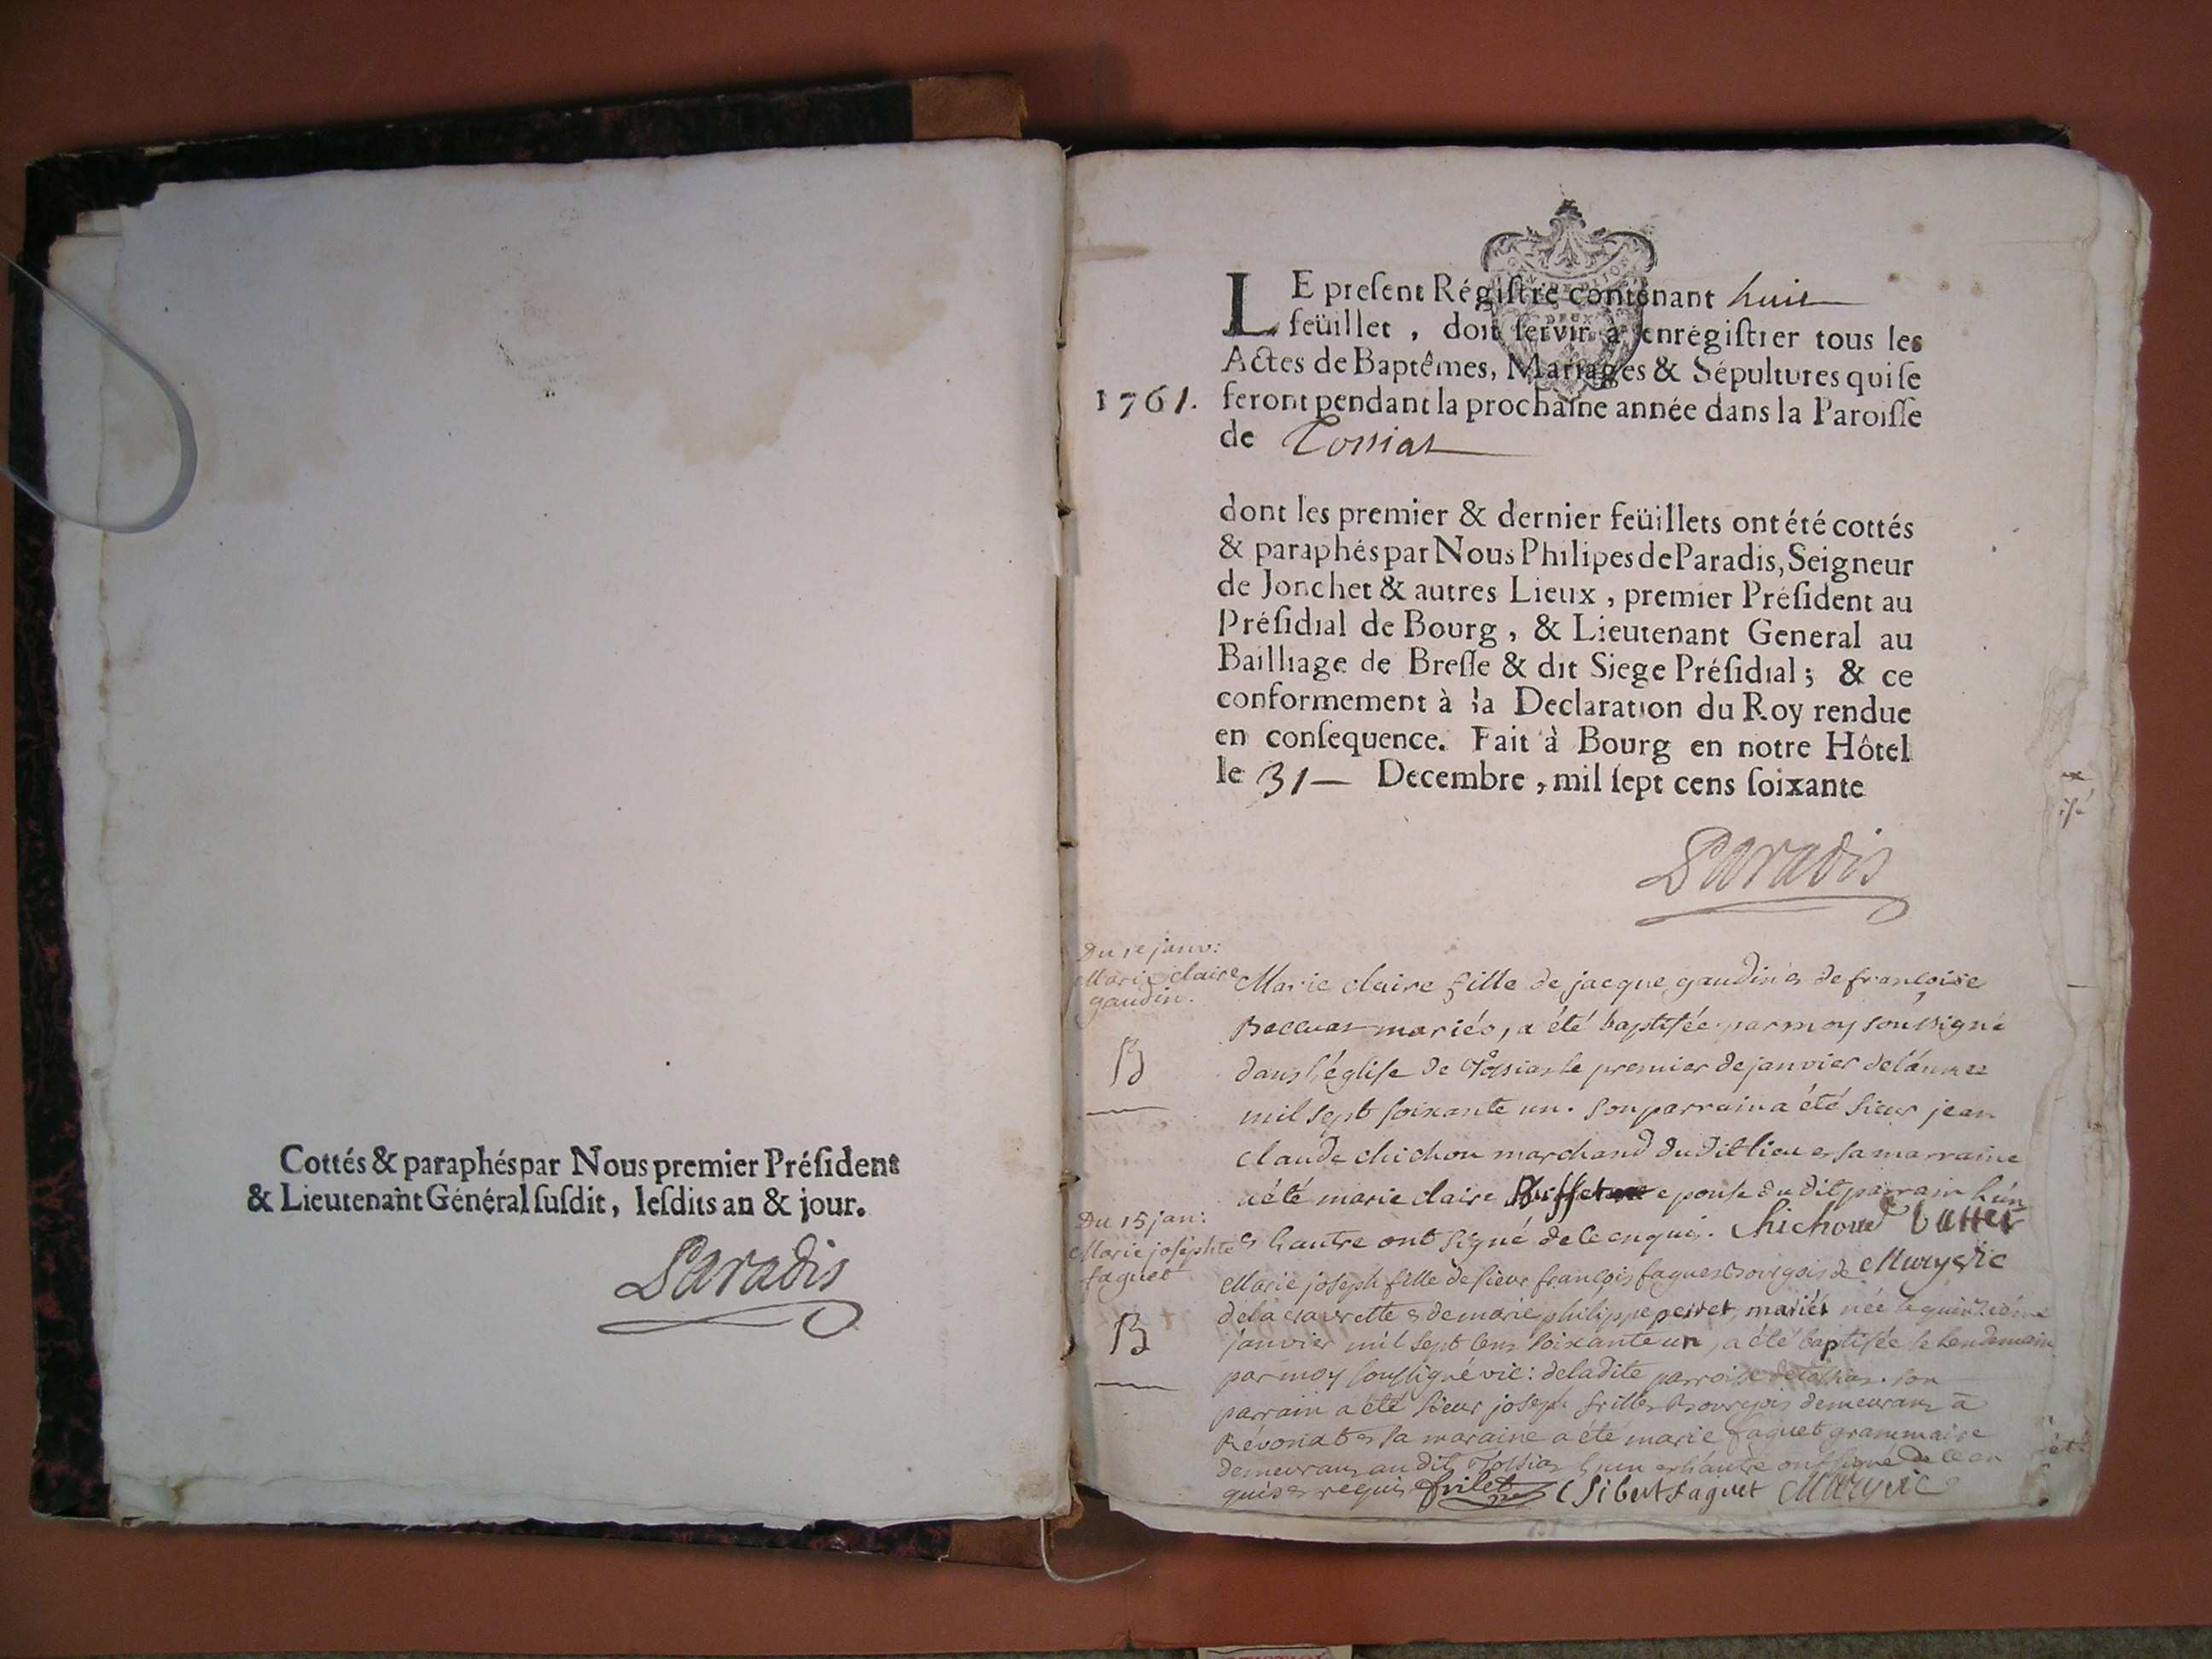 Cottés & paraphés par Nous premier Préſident
& Lieutenant Général ſuſdit, leſdits an & jour.
Paradis
LE preſent Régiſtre contenant huit
feüillet , doit ſervir à enrégiſtrer tous les
Actes de Baptêmes, Mariages & Sépultures qui ſe
1761. feront pendant la prochaine année dans la Paroiſſe
de Tossiat
dont les premier & dernier feüillets ont été cottés
& paraphés par Nous Philipes de Paradis, Seigneur
de Jonchet & autres Lieux , premier Préſident au
Préſidial de Bourg , & Lieutenant General au
Bailliage de Breſſe & dit Siege Préſidial ; & ce
conformement à la Declaration du Roy rendue
en conſequence. Fait à Bourg en notre Hôtel
le 31 Decembre , mil ſept cens ſoixante
Paradis
Du 1e janv:
Marie claire
gaudin.
B
Marie claire fille de jacque gaudin et de françoise
mariés, a été baptisée par moy soussigné
dans l'église de Tossiat le premier de janvier de l'année
mil sept soixante un. son parrain a été sieur jean
claude chichon marchand du dit lieu et sa marraine
a été marie claire epouse du dit parrain l'un
et l'autre ont signé de ce enquis. Chichoud
Du 15 jan:
Marie josephte
faguet
B
Marie joseph fille de sieur françois faguet Bourgois de
de la et de marie philippe perret, mariés née le quinzième
janvier mil sept cens soixante un, a été baptisée le lendemain
par moy soussigné vic: de ladite parroisse de tossiat. son
parrain a été sieur joseph frillet Bourgois demeurant à
Révonat et sa maraine a été marie faguet grammaire
demeurant au dit Tossiat l'un et l'autre ont signé de ce en
quis et requis frilet Sibert faguet